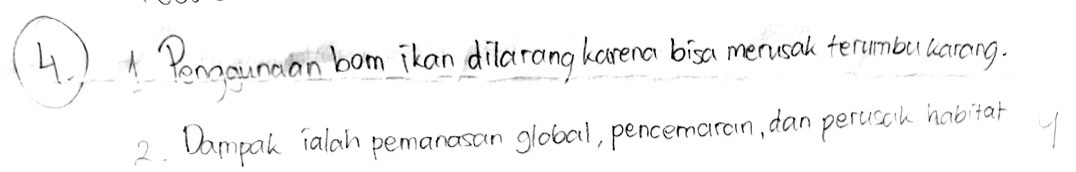 4. 1 Penggunaan bom ikan dilarang karena bisa merusak terumbu karang.
2. Dampak ialah pemanasan global, pencemaran, dan perusak habitat